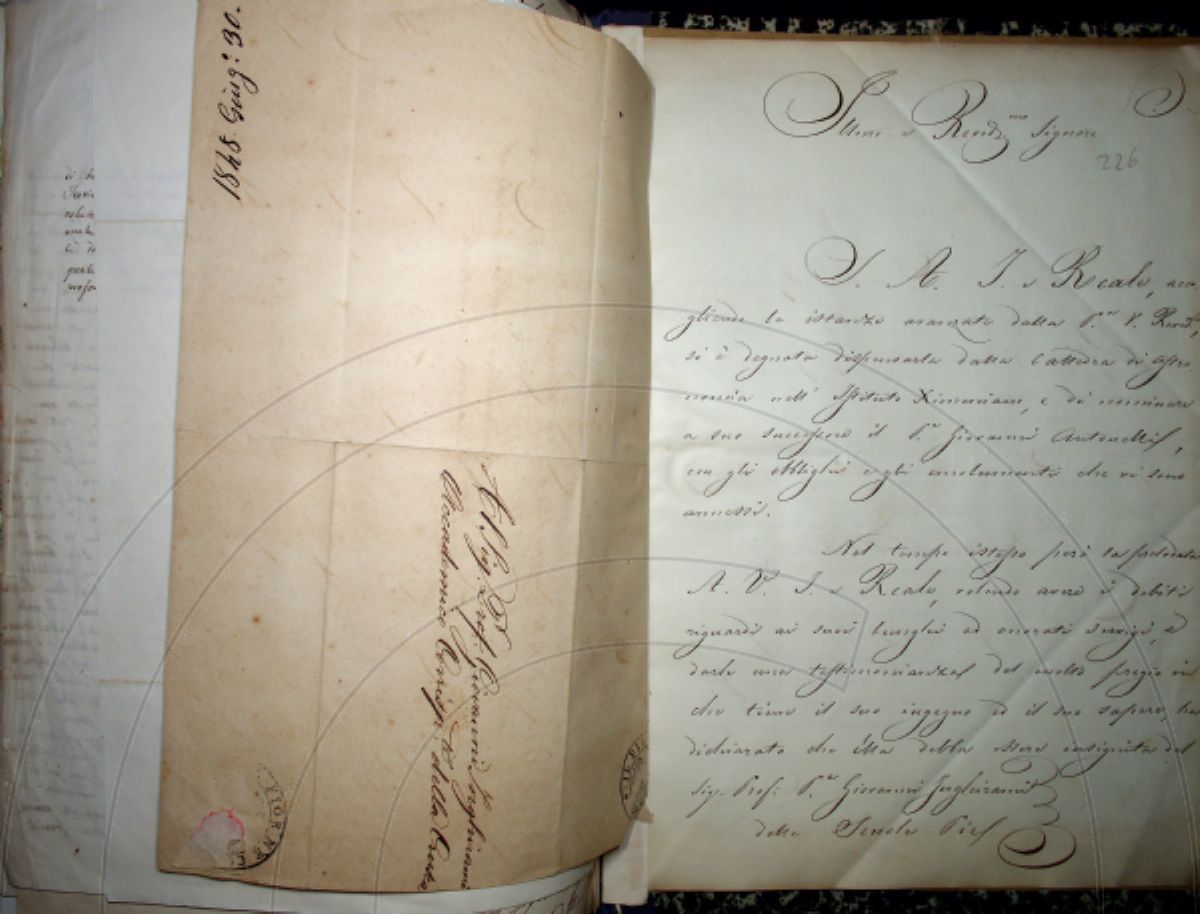 1848. Giug.º 30.
Al Sig. Prof. Giovanni Inghirami
Accademico Corrisp.te della Crusca
Illmo. e Revd.mo Signore
226
S. A. I. e Reale, acco-
gliendo le istanze avanzate dalla P. V. Revd.
si è degnata dispensarla dalla Cattedra di Astro-
nomia nell' Istituto Ximeniano, e di nominare
a suo successore il P. Giovanni Antonelli,
con gli obblighi e gli emolumenti che vi sono
annessi.
Nel tempo istesso però la prelodata
A. S. I. e Reale, volendo avere i debiti
riguardi ai suoi lunghi ed onorati servigi, e
darle una testimonianza del molto pregio in
che tiene il suo ingegno ed il suo sapere, ha
dichiarato che Ella debba essere insignita del
Sig. Prof. P. Giovanni Inghirami
delle Scuole Pie